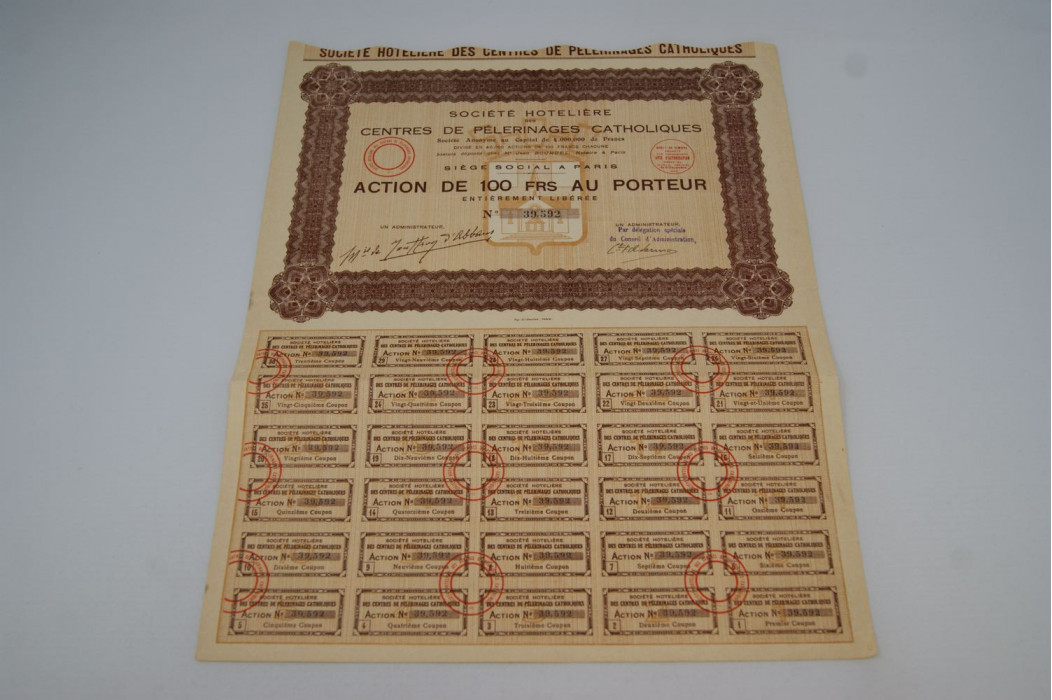 SOCIÉTÉ HOTELIÈRE DES CENTRES DE PÉLERINAGES CATHOLIQUES
SOCIÉTÉ HOTELIÈRE
DES
CENTRES DE PÉLERINAGES CATHOLIQUES
Société Anonyme au Capital de 4.000.000 de Francs
SIÈGE SOCIAL A PARIS
ACTION DE 100 FRS AU PORTEUR
ENTIÈREMENT LIBÉRÉE
N° 39,592
UN ADMINISTRATEUR,
UN ADMINISTRATEUR,
Par délégation spéciale
du Conseil d'administration,
SOCIÉTÉ HOTELIÈRE
DES CENTRES DE PÉLERINAGES CATHOLIQUES
ACTION N° 39,592
30 Trentième Coupon
SOCIÉTÉ HOTELIÈRE
DES CENTRES DE PÉLERINAGES CATHOLIQUES
ACTION N° 39,592
29 Vingt-Neuvième Coupon
SOCIÉTÉ HOTELIÈRE
DES CENTRES DE PÉLERINAGES CATHOLIQUES
ACTION N° 39,592
28 Vingt-Huitième Coupon
SOCIÉTÉ HOTELIÈRE
DES CENTRES DE PÉLERINAGES CATHOLIQUES
ACTION N° 39,592
27 Vingt-Septième Coupon
SOCIÉTÉ HOTELIÈRE
DES CENTRES DE PÉLERINAGES CATHOLIQUES
ACTION N° 39,592
26 Vingt-Sixième Coupon
SOCIÉTÉ HOTELIÈRE
DES CENTRES DE PÉLERINAGES CATHOLIQUES
ACTION N° 39,592
25 Vingt-Cinquième Coupon
SOCIÉTÉ HOTELIÈRE
DES CENTRES DE PÉLERINAGES CATHOLIQUES
ACTION N° 39,592
24 Vingt-Quatrième Coupon
SOCIÉTÉ HOTELIÈRE
DES CENTRES DE PÉLERINAGES CATHOLIQUES
ACTION N° 39,592
23 Vingt-Troisième Coupon
SOCIÉTÉ HOTELIÈRE
DES CENTRES DE PÉLERINAGES CATHOLIQUES
ACTION N° 39,592
22 Vingt-Deuxième Coupon
SOCIÉTÉ HOTELIÈRE
DES CENTRES DE PÉLERINAGES CATHOLIQUES
ACTION N° 39,592
21 Vingt-et-Unième Coupon
SOCIÉTÉ HOTELIÈRE
DES CENTRES DE PÉLERINAGES CATHOLIQUES
ACTION N° 39,592
20 Vingtième Coupon
SOCIÉTÉ HOTELIÈRE
DES CENTRES DE PÉLERINAGES CATHOLIQUES
ACTION N° 39,592
19 Dix-Neuvième Coupon
SOCIÉTÉ HOTELIÈRE
DES CENTRES DE PÉLERINAGES CATHOLIQUES
ACTION N° 39,592
18 Dix-Huitième Coupon
SOCIÉTÉ HOTELIÈRE
DES CENTRES DE PÉLERINAGES CATHOLIQUES
ACTION N° 39,592
17 Dix-Septième Coupon
SOCIÉTÉ HOTELIÈRE
DES CENTRES DE PÉLERINAGES CATHOLIQUES
ACTION N° 39,592
16 Seizième Coupon
SOCIÉTÉ HOTELIÈRE
DES CENTRES DE PÉLERINAGES CATHOLIQUES
ACTION N° 39,592
15 Quinzième Coupon
SOCIÉTÉ HOTELIÈRE
DES CENTRES DE PÉLERINAGES CATHOLIQUES
ACTION N° 39,592
14 Quatorzième Coupon
SOCIÉTÉ HOTELIÈRE
DES CENTRES DE PÉLERINAGES CATHOLIQUES
ACTION N° 39,592
13 Treizième Coupon
SOCIÉTÉ HOTELIÈRE
DES CENTRES DE PÉLERINAGES CATHOLIQUES
ACTION N° 39,592
12 Douzième Coupon
SOCIÉTÉ HOTELIÈRE
DES CENTRES DE PÉLERINAGES CATHOLIQUES
ACTION N° 39,592
11 Onzième Coupon
SOCIÉTÉ HOTELIÈRE
DES CENTRES DE PÉLERINAGES CATHOLIQUES
ACTION N° 39,592
10 Dixième Coupon
SOCIÉTÉ HOTELIÈRE
DES CENTRES DE PÉLERINAGES CATHOLIQUES
ACTION N° 39,592
9 Neuvième Coupon
SOCIÉTÉ HOTELIÈRE
DES CENTRES DE PÉLERINAGES CATHOLIQUES
ACTION N° 39,592
8 Huitième Coupon
SOCIÉTÉ HOTELIÈRE
DES CENTRES DE PÉLERINAGES CATHOLIQUES
ACTION N° 39,592
7 Septième Coupon
SOCIÉTÉ HOTELIÈRE
DES CENTRES DE PÉLERINAGES CATHOLIQUES
ACTION N° 39,592
6 Sixième Coupon
SOCIÉTÉ HOTELIÈRE
DES CENTRES DE PÉLERINAGES CATHOLIQUES
ACTION N° 39,592
5 Cinquième Coupon
SOCIÉTÉ HOTELIÈRE
DES CENTRES DE PÉLERINAGES CATHOLIQUES
ACTION N° 39,592
4 Quatrième Coupon
SOCIÉTÉ HOTELIÈRE
DES CENTRES DE PÉLERINAGES CATHOLIQUES
ACTION N° 39,592
3 Troisième Coupon
SOCIÉTÉ HOTELIÈRE
DES CENTRES DE PÉLERINAGES CATHOLIQUES
ACTION N° 39,592
2 Deuxième Coupon
SOCIÉTÉ HOTELIÈRE
DES CENTRES DE PÉLERINAGES CATHOLIQUES
ACTION N° 39,592
1 Premier Coupon